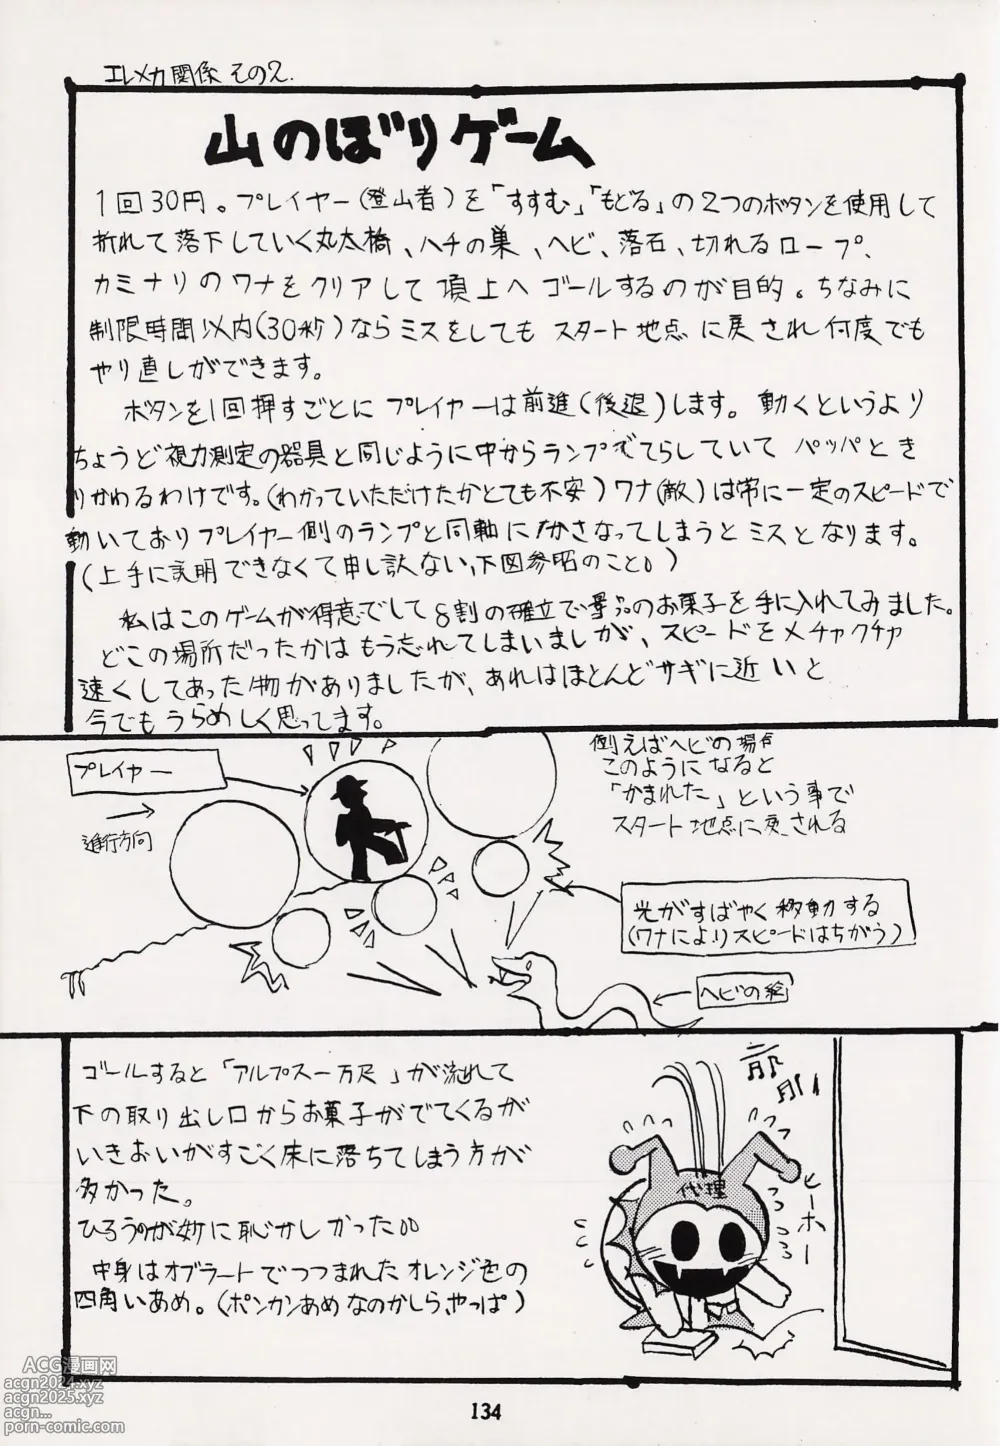 エレメカ関係 その2.
山のぼりゲーム
1回30円。プレイヤー(登山者)を「すすむ」「もどる」の2つのボタンを使用して
折れて落下していく丸太橋、ハチの巣、ヘビ、落石、切れるロープ、
カミナリのワナをクリアして頂上へゴールするのが目的。ちなみに
制限時間以内(30秒)ならミスをしてもスタート地点に戻され何度でも
やり直しができます。
ボタンを1回押すごとにプレイヤーは前進(後退)します。動くというより
ちょうど視力測定の器具と同じように中からランプでてらしていてパッパとき
りかわるわけです。(わかっていただけたかとても不安)ワナ(敵)は常に一定のスピードで
動いておりプレイヤー側のランプと同軸にかさなってしまうとミスとなります。
(上手に説明できなくて申し訳ない、下図参照のこと。)
私はこのゲームが得意でして8割の確立で景品のお菓子を手に入れてみました。
どこの場所だったかはもう忘れてしまいましが、スピードをメチャクチャ
速くしてあった物がありましたが、あれはほとんどサギに近いと
今でもうらめしく思ってます。
プレイヤー
進行方向
例えばヘビの場合
このようになると
「かまれた」という事で
スタート地点に戻される
光がすばやく移動する
(ワナによりスピードはちがう)
ヘビの絵
ゴールすると「アルプス一万尺」が流れて
下の取り出し口からお菓子がでてくるが
いきおいがすごく床に落ちてしまう方が
多かった。
ひろうのが妙に恥かしかった。。
中身はオブラートでつつまれたオレンジ色の
四角いあめ。(ポンカンあめなのかしら、やっぱ)
代理
ヒーホー
134
ACG漫画网
acgn2024.xyz
acgn2025.xyz
acgn...
porn-comic.com